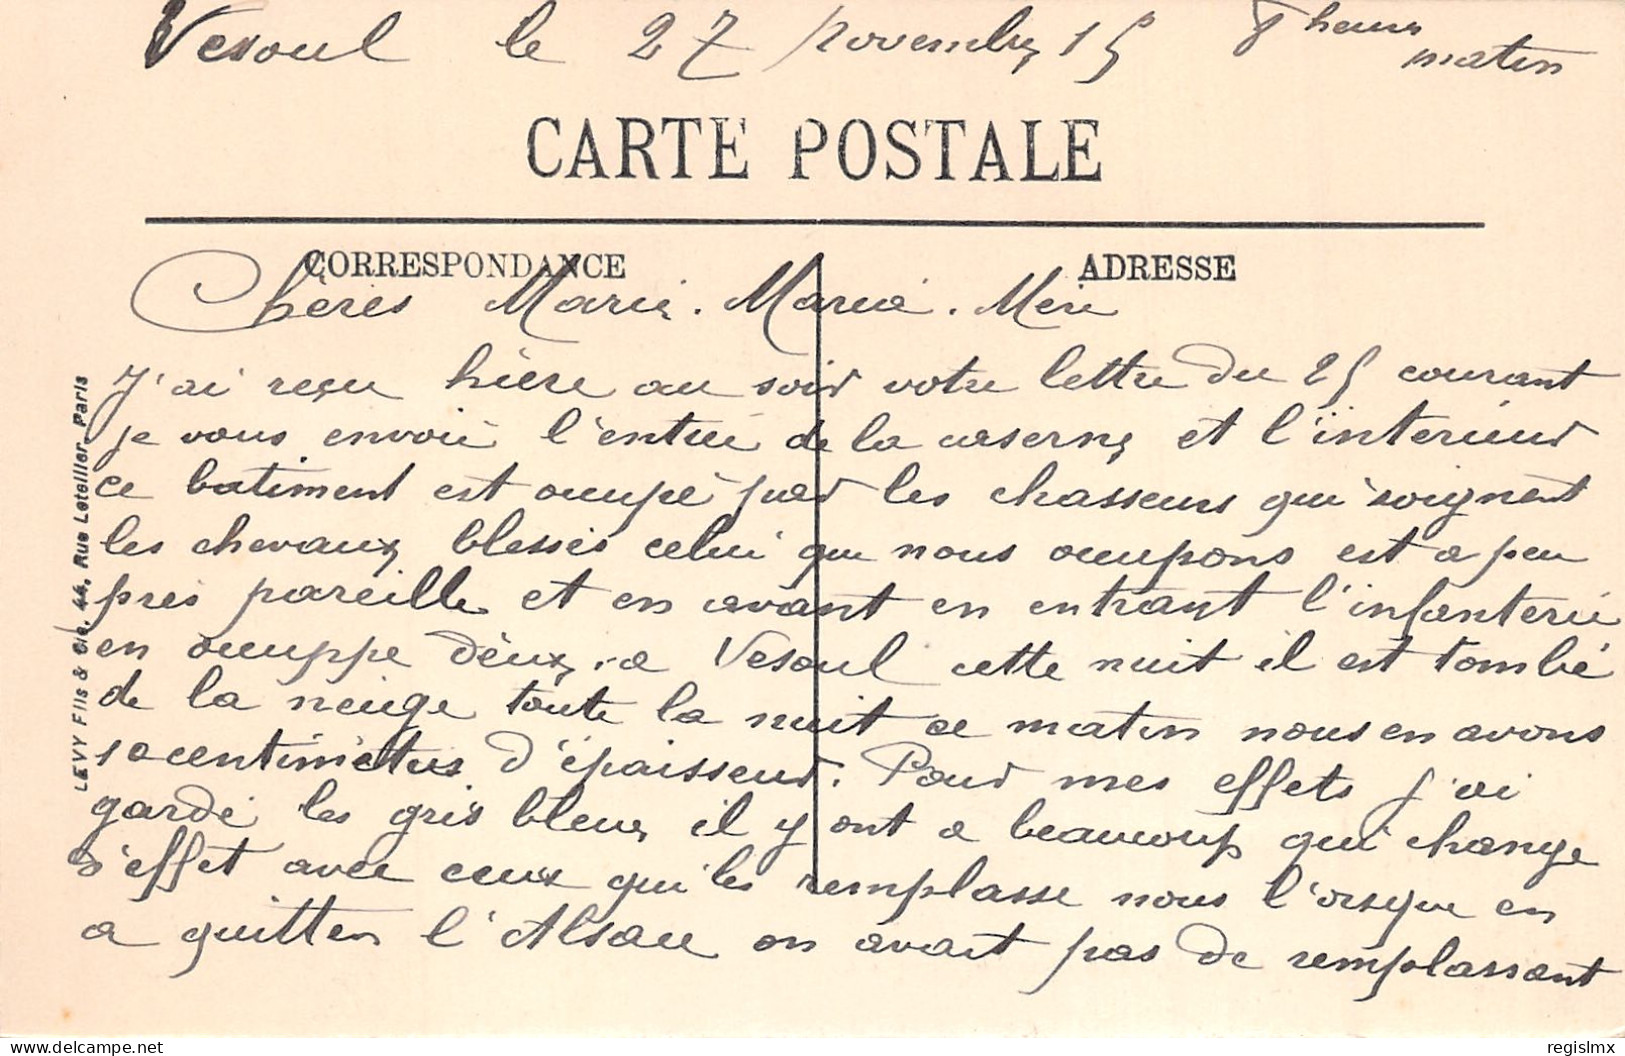 Vesoul le 27 Novembre 15 8 heures
matin
CARTE POSTALE
CORRESPONDANCE
ADRESSE
Chères Marie. Maria. Mère
J'ai reçu hière au soir votre lettre du 25 courant
je vous envoie l'entrée de la caserne et l'intérieur
ce batiment est occupé par les chasseurs qui soignent
les chevaux blessés celui que nous occupons est a peu
près pareille et en avant en entrant l'infanterie
en ocuppe deux. a Vesoul cette nuit il est tombé
de la neige toute la nuit ce matin nous en avons
10 centimètres d'épaisseur. Pour mes effets j'ai
gardé les gris bleu, il y ont a beaucoup qui change
s'effet avec ceux qui les remplasse nous l'orsque en
a quitten l'Alsace on avait pas de remplassant
LEVY Fils & Cie, 44, Rue Letellier, Paris
regislmx